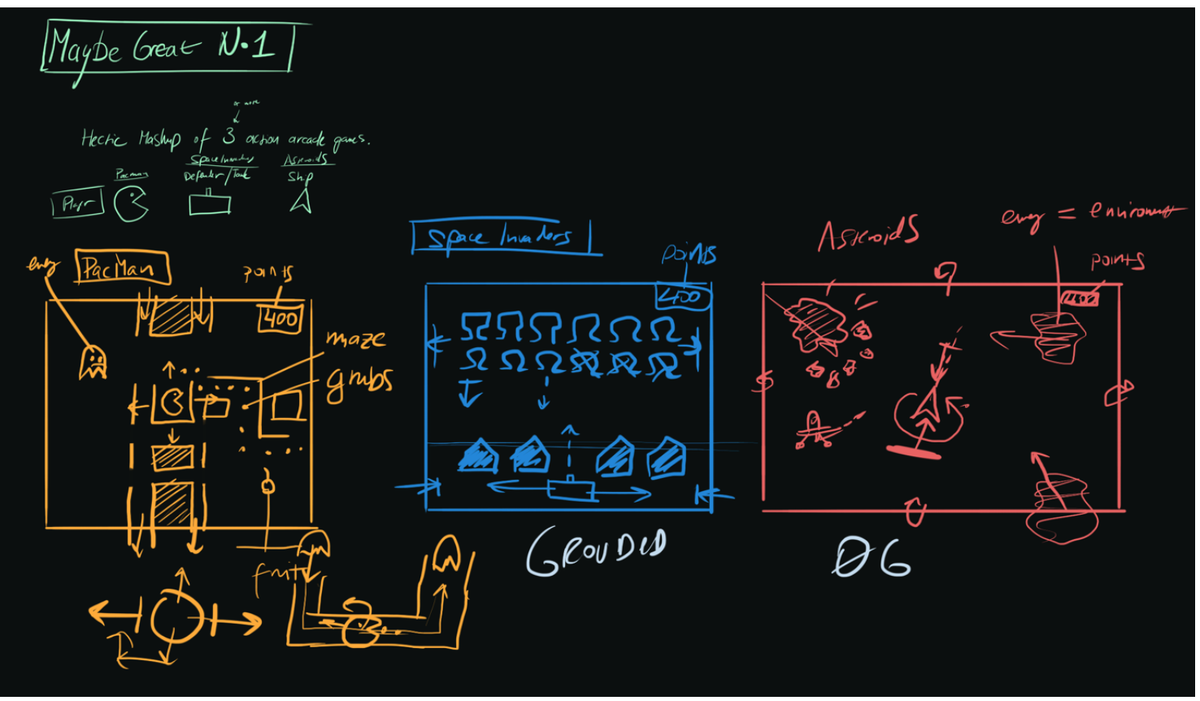 Maybe Great N.1
or more
Hectic Mashup of 3 action arcade games.
Pacman
Space Invaders
Asteroids
Defender/Tank
Ship
Player
enemy
PacMan
points
400
maze
grubs
fruit
Space Invaders
points
400
GROUDED
Asteroids
enemy = environment
points
400
0G